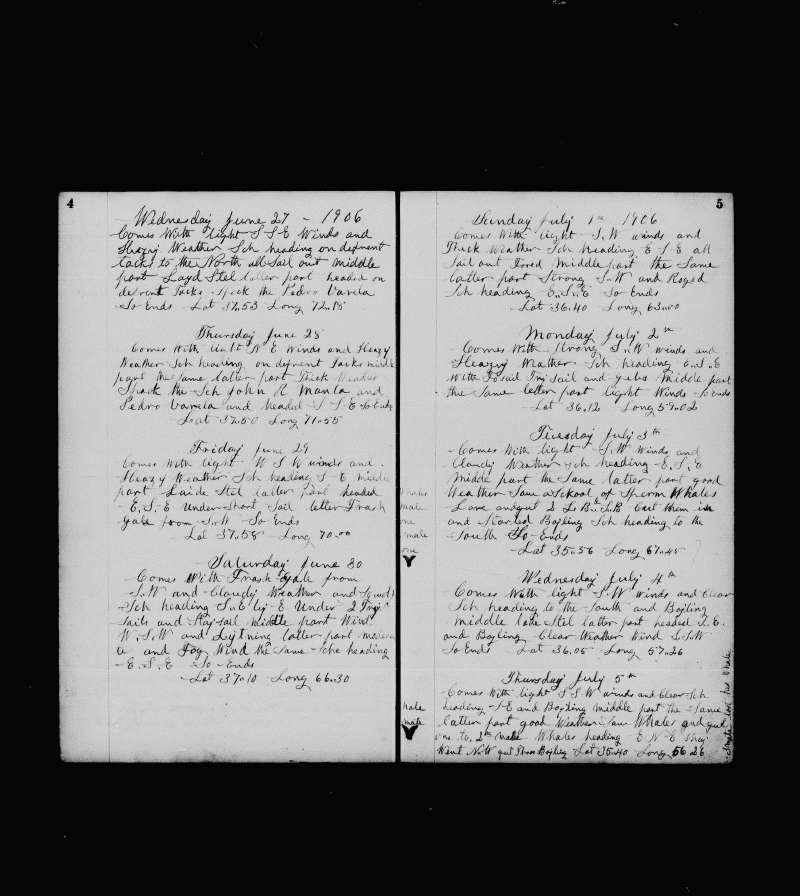 4
Wednesday June 27 - 1906
Comes With light S S E Winds and
Heazy Weather Sch heading on defrent
tacks to the North all Sail out middle
part Layd Stel latter part headed on
defrent Tacks Spock the Pedro Varela
So Ends Lat 37.53 Long 72.18
Thursday June 28
Comes With light N E Winds and Heazy
Weather Sch heading on defrent Tacks middle
part the Same latter part Thick Weather
Spock the Sch John R Manta and
Pedro Varela and headed S S E So Ends
Lat 37.50 Long 71.55
Friday June 29
Comes With light W S W winds and
Heazy Weather Sch heading S E middle
part Laide Stel latter part headed
E.S.E under Short Sail latter Frash
Gale from S.W So Ends
Lat 37.58 Long 70.00
Saturday June 30
Comes With Frash Gale from
S.W and Cloudy Weather and
Sch heading S.E by E Under 2 Try
Sails and Staysail Middle part Wind
W.S.W and Lijtning latter part modern
te and Fog Wind the Same Sche heading
E.S.E So Ends
Lat 37.10 Long 66.30
5
Sunday July 1st 1906
Comes With light S.W winds and
Thick Weather Sch Heading E S E all
Sail out Fored Middle part the Same
latter part Strong S.W and Roged
Sch heading E.S.E So Ends
Lat 36.40 Long 63.00
Monday July 2th
Comes With Strong S.W winds and
Heazy Weather Sch heading E.S.E
With Fosail Try Sail and gebs Middle part
the Same latter part light Winds So Ends
Lat 36.12 Long 59.02
Tuesday July 3th
Comes With light S.W Winds and
Cloudy Weather Sch heading E.S.E
Middle part the Same latter part good
Weather Saw a Skool of Sperm Whales
Lore and gut 2 Ls B. S.B Cut them in
and Started Boyling Sch heading to the
South So Ends
Lat 35.56 Long 67.45
Wednesday July 4th
Comes With light S.W Winds and Clear
Sch heading to the South and Boyling
Middle late Stel latter part headed S.E.
and Boyling Clear Weather Wind S.S.W
So Ends Lat 36.05 Long 57.26
Thursday July 5th
Comes With light S S W winds and Clear Sch
heading S E and Boyling middle part the Same
latter part good Weather Saw Whales and gut
one to 2th mate Whales heading E N E they
Went N.W gut Boyling Lat 35.40 Long 56 26
whales
mate
one
mate
one
hale
mate